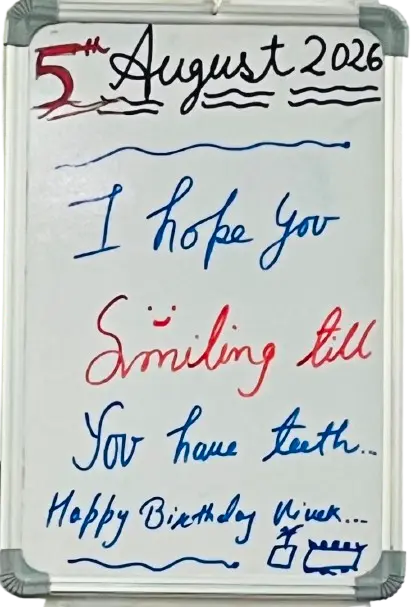 5th August 2026
I hope You
Smiling till
You have teeth...
Happy Birthday Vivek...